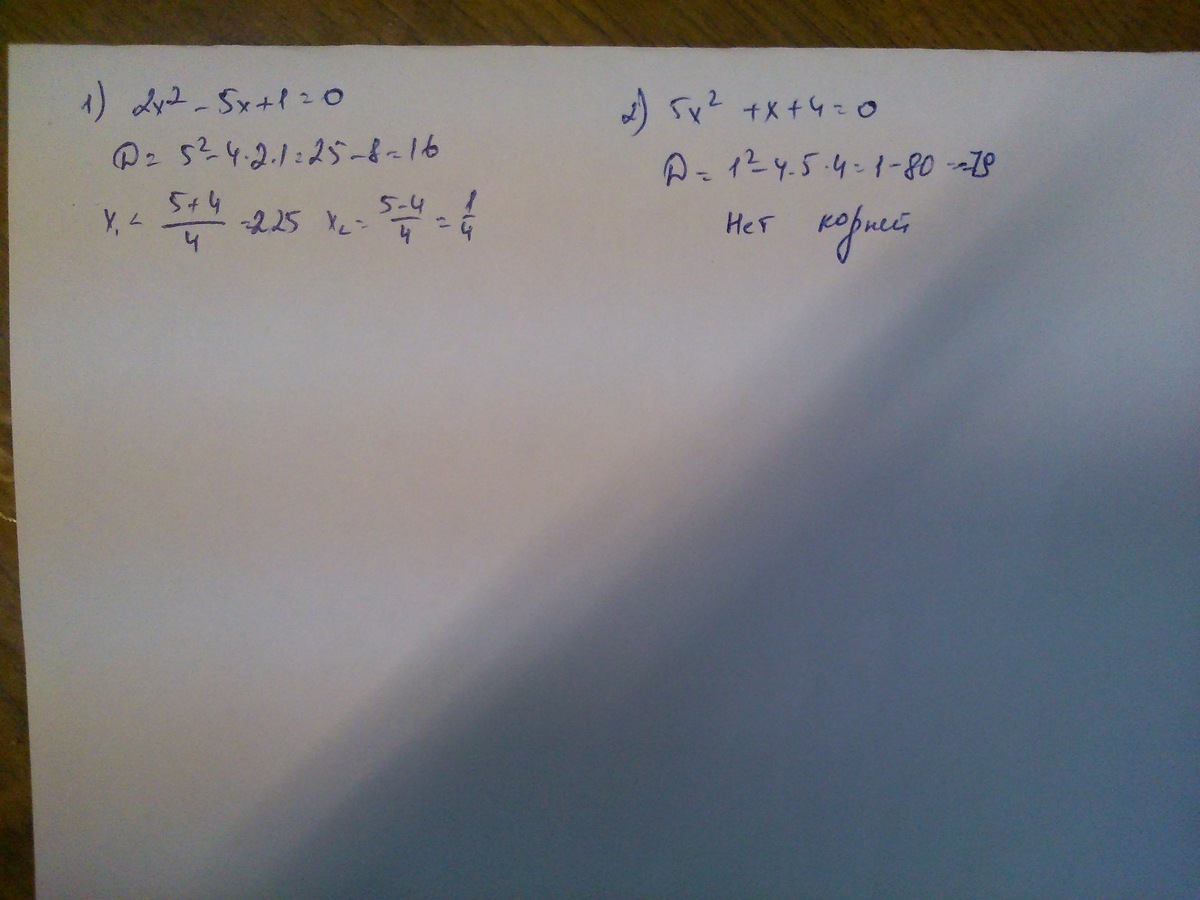 1) 2x² - 5x + 1 = 0
D = 5² - 4·2·1 = 25 - 8 = 16
x₁ = (5+4)/4 = 2,25 x₂ = (5-4)/4 = 1/4
2) 5x² + x + 4 = 0
D = 1² - 4·5·4 = 1 - 80 = -79
Нет корней